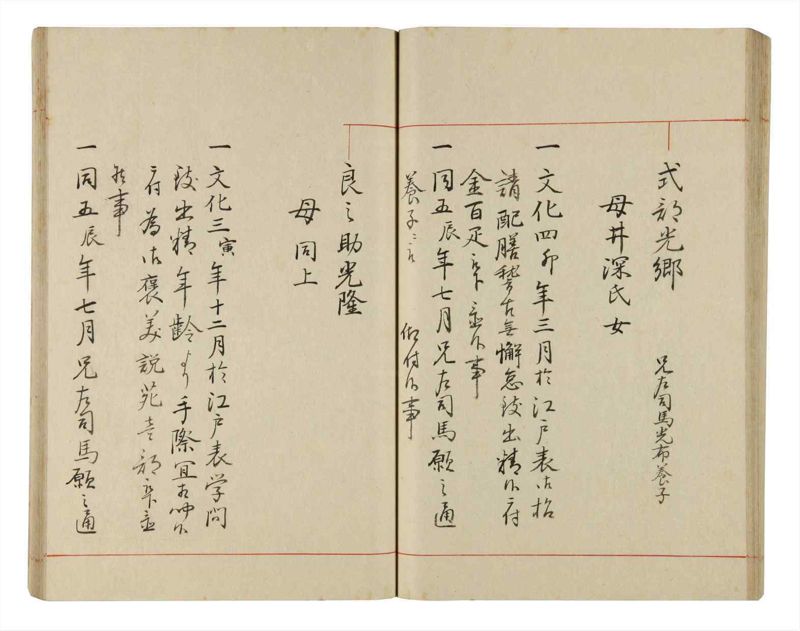 式部光郷
兄左司馬光布養子
母井深氏女
一文化四卯年三月於江戸表御格
請配膳稽古無懈怠致出精候ニ付
金百疋被下置候事
一同五辰年七月兄左司馬願之通
養子ニ被 仰付候事
良之助光隆
母同上
一文化三寅年十二月於江戸表学問
致出精年齢より手際宜相聞候
ニ付為御褒美説苑壱部被下置
候事
一同五辰年七月兄左司馬願之通